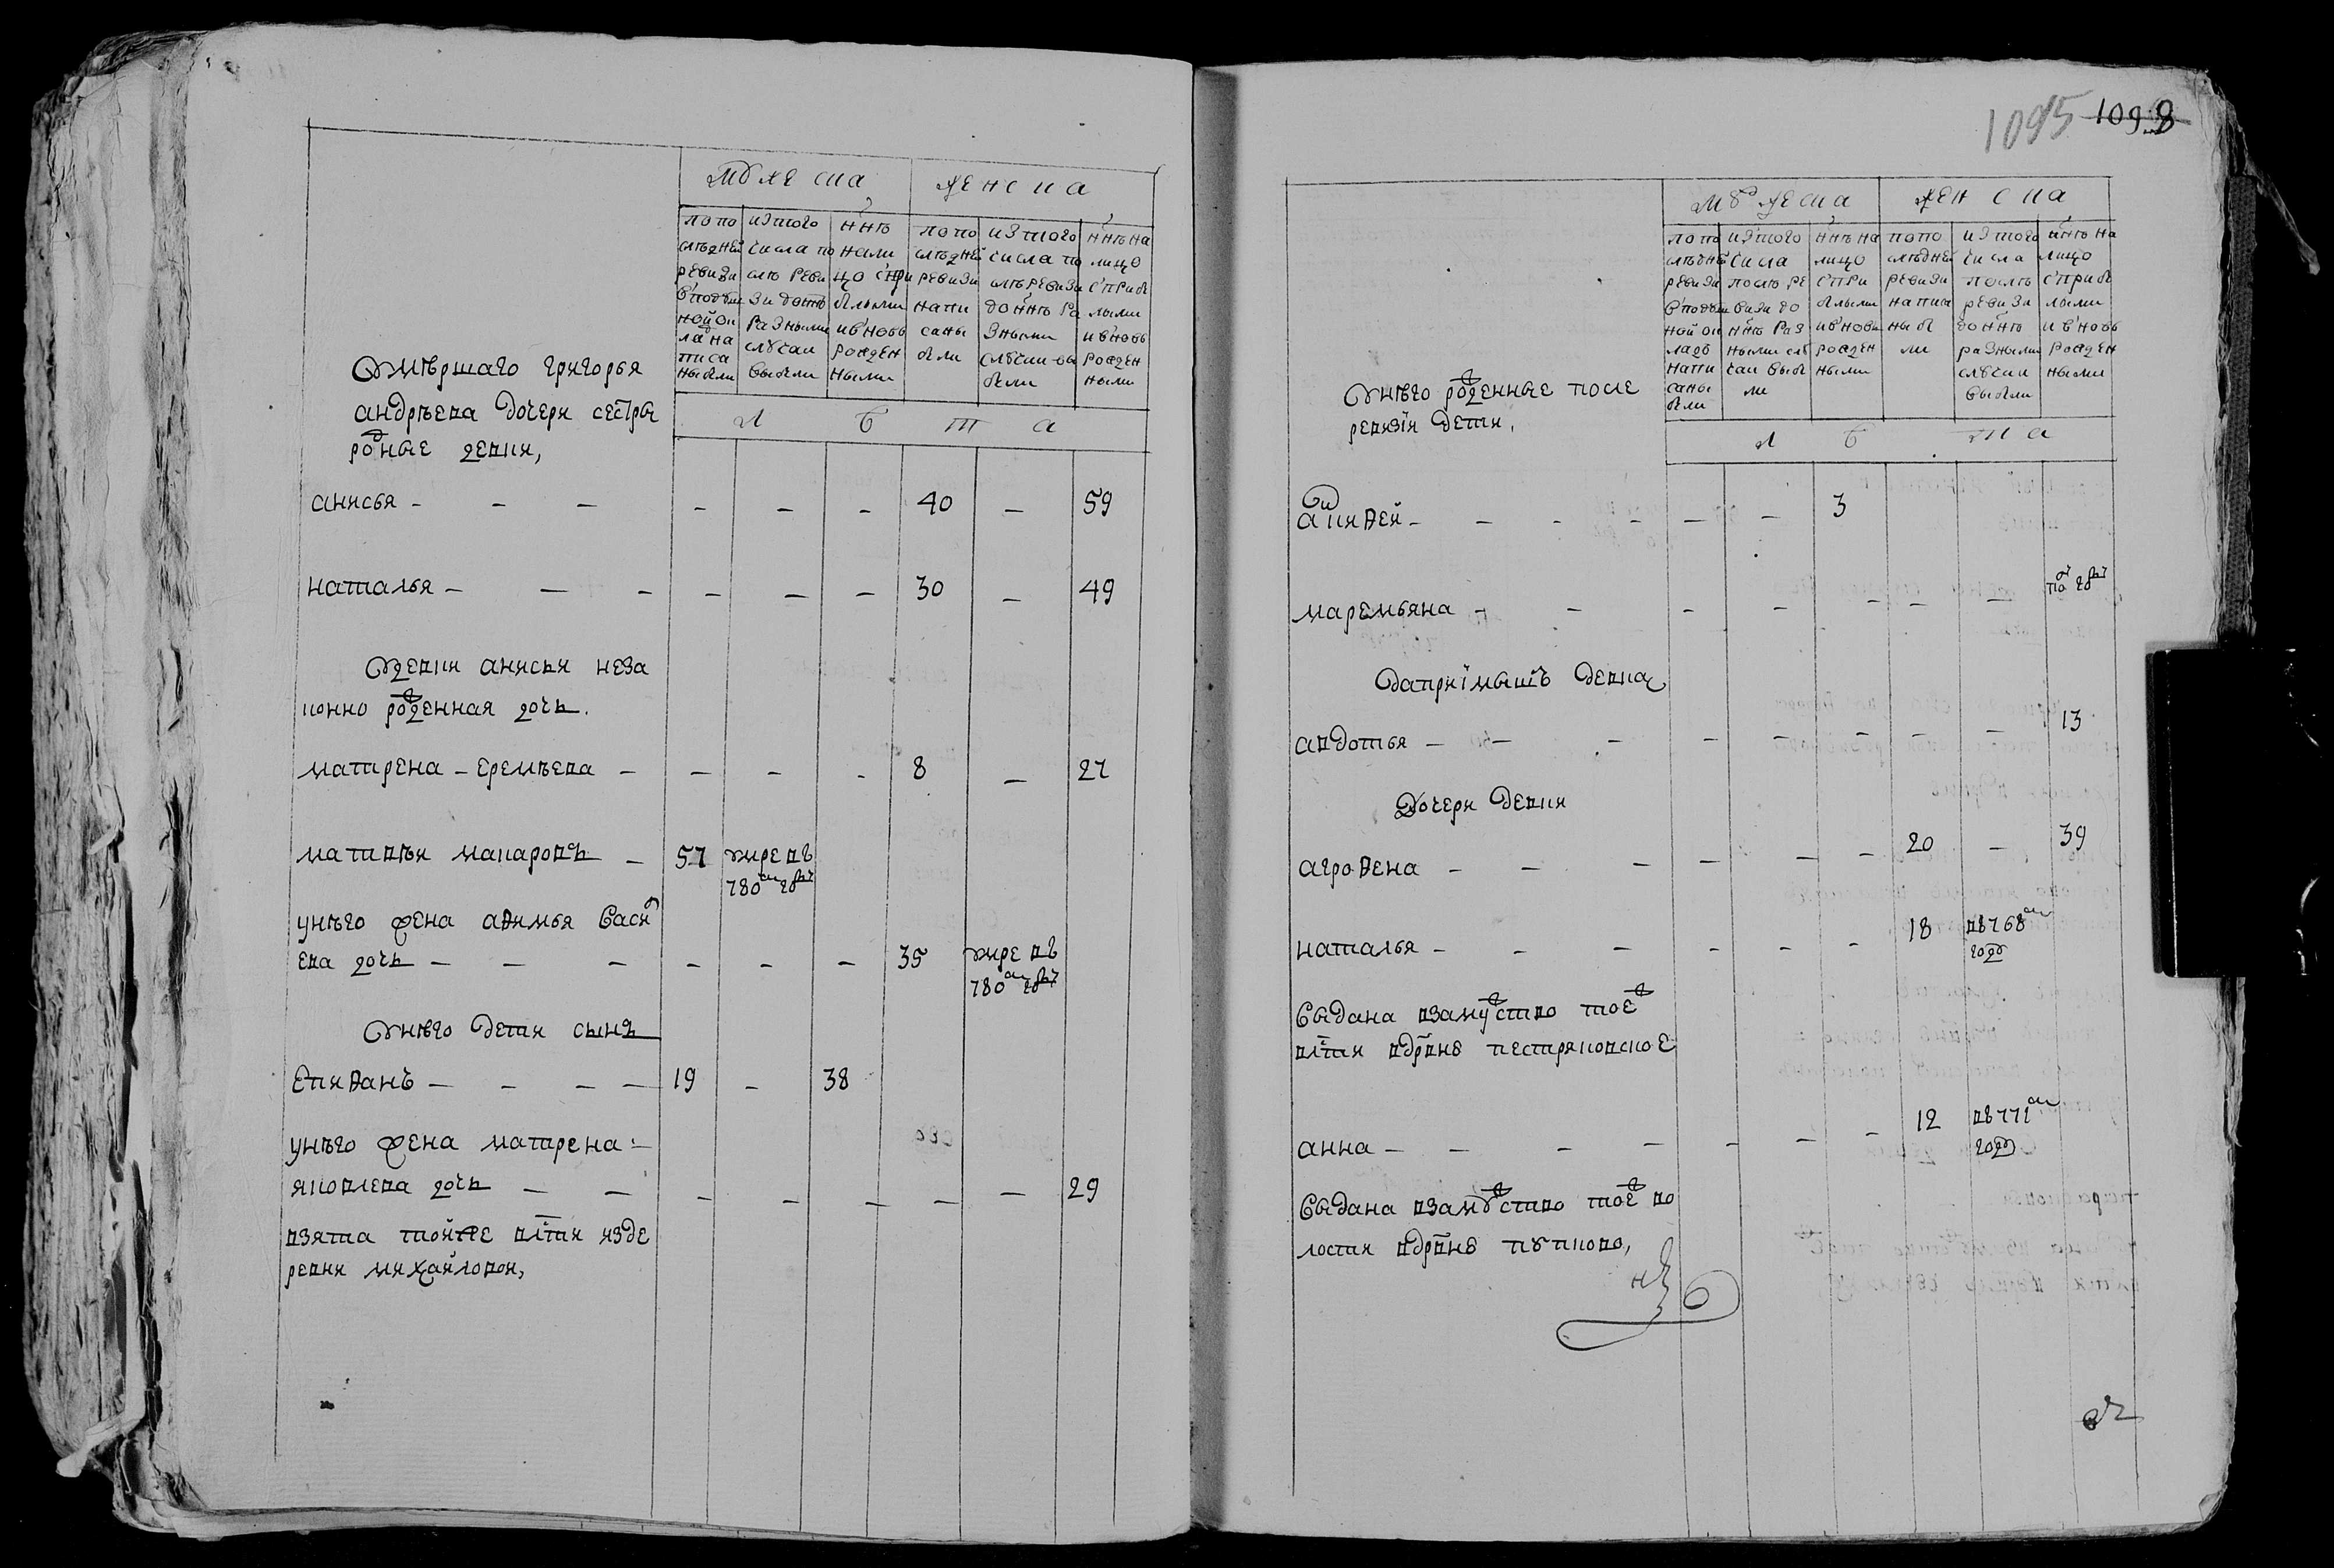 мужеска женска
по последней ревизи в'подушной оклад написаны были
из того числа по слѣ ревизи до ннѣ разными случаи выбыли
ннѣ на лицо с'прибылыми и в'новь рожденными
по последней ревизи написаны были
из того числа по слѣ ревизи до ннѣ разными случаи выбыли
ннѣ на лицо с'прибылыми и в'новь рожденными
лѣта
Умѣршаго григорья
андрѣева дочери сестры
родные девки,
анисья - - - - - - 40 - 59
наталья - - - - - - 30 - 49
Удевки анисьи неза
конно рожденная дочь.
матрена - еремѣева - - - - 8 - 27
матвѣй макаровъ - 57 умре въ
780м году
унѣго жена афимья васил
ева дочь - - - - - - 35 умре въ
780м году
Унѣго дети сынъ
Епифанъ - - - - 19 - 38
унѣго жена матрена -
яковлева дочь - - - - - - - 29
взята тойже влсти изде
ревни михайловои,
1095 1098
мужеска женска
по последней ревизи в'подушной окладъ написаны были
из'того числа послѣ ревизи до ннѣ разными случаи выбыли
ннѣ на лицо с'прибылыми и в'новь рожденными
по последней ревизи написаны были
из того числа послѣ ревизи до ннѣ разными случаи выбыли
ннѣ на лицо с'прибылыми и в'новь рожденными
лѣта
Унѣго рожденные после
ревизїи дети,
аникей - - - - - - 3
маремьяна - - - - - - - - году
Даприїмышъ девка
авдотья - - - - - - - - 13
Дочери девки
агрофена - - - - - - 20 - 39
наталья - - - - - - 18 въ768м
году
выдана взамужство тоеж
влсти вдрвню пестряковское
анна - - - - - - 12 въ771м
году
выдана взамужство тоеж во
лости вдрвню пупково,